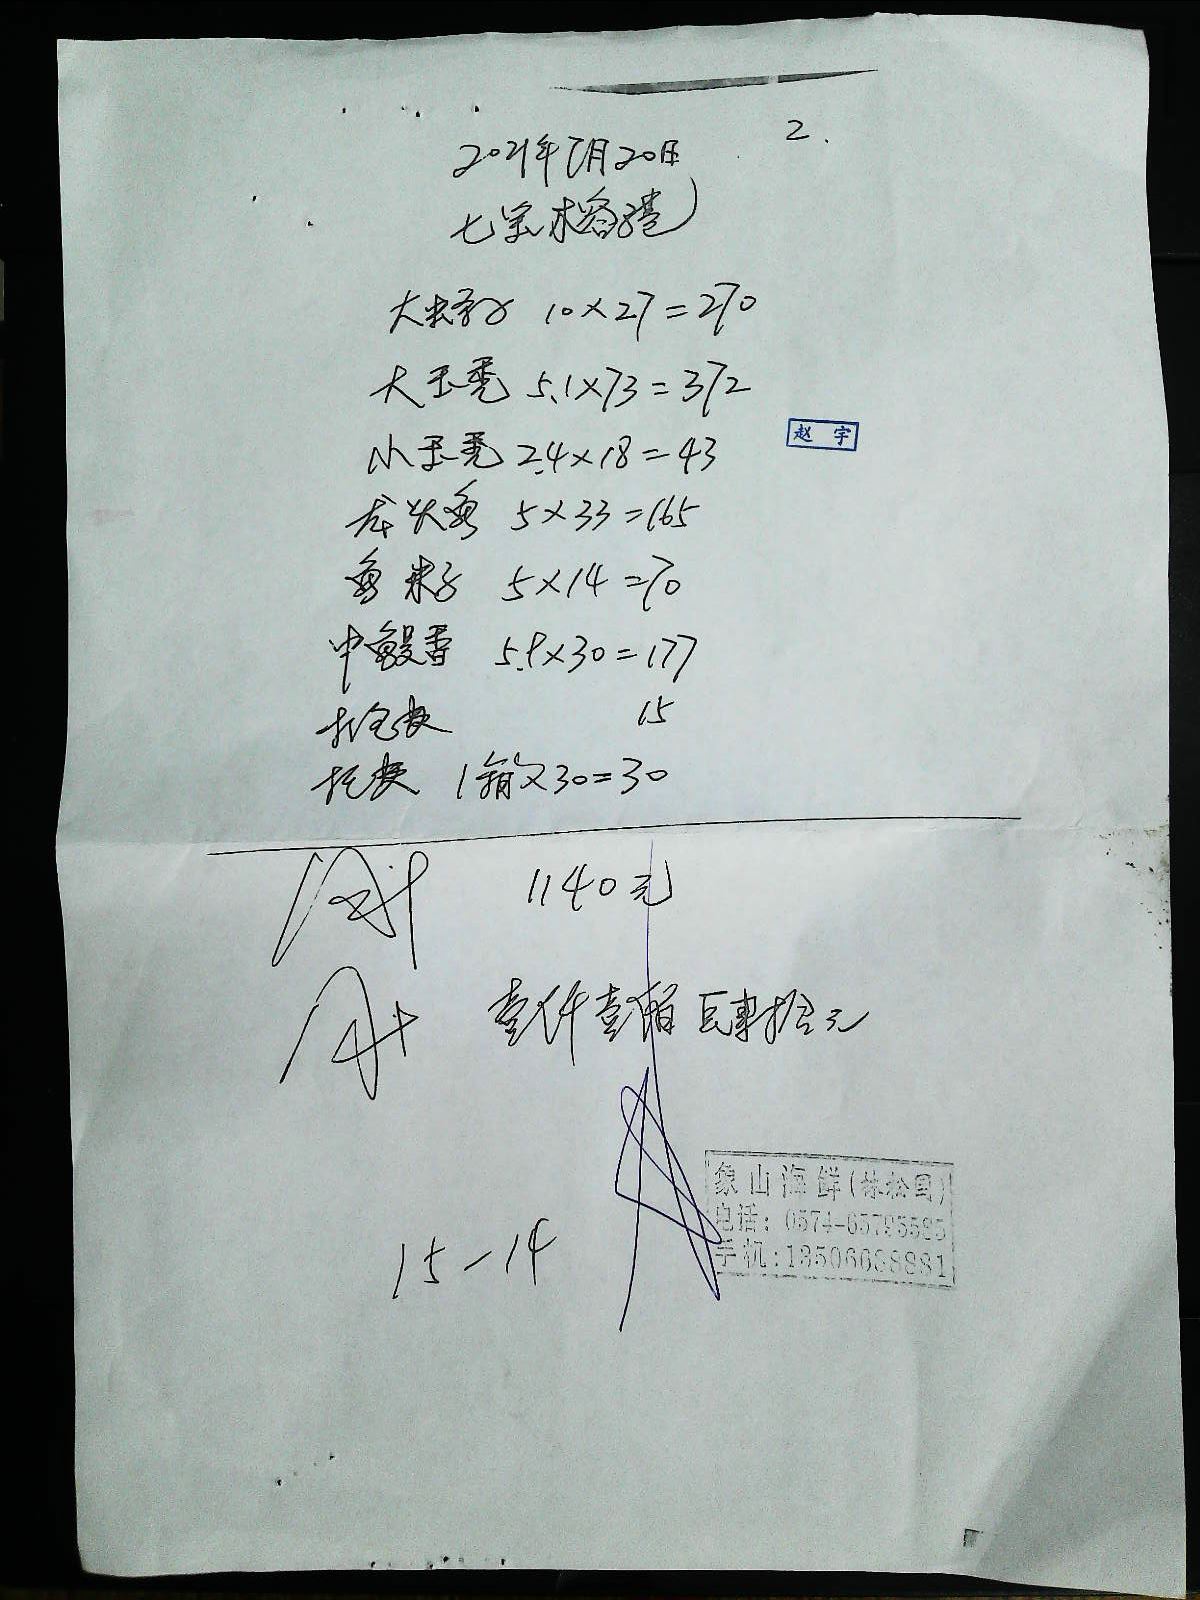 2.
2021年7月20日
七宝木榕港
大虫子 10×27=270
大玉秃 5.1×73=372
赵宇
小玉秃 2.4×18=43
龙头鱼 5×33=165
鱼米子 5×14=70
中鳗香 5.9×30=177
打包费 15
托费 1箱×30=30
1140元
壹仟壹佰 肆拾元
15-14
象山海鲜(林松国)
电话:0574-65795585
手机:13506608881